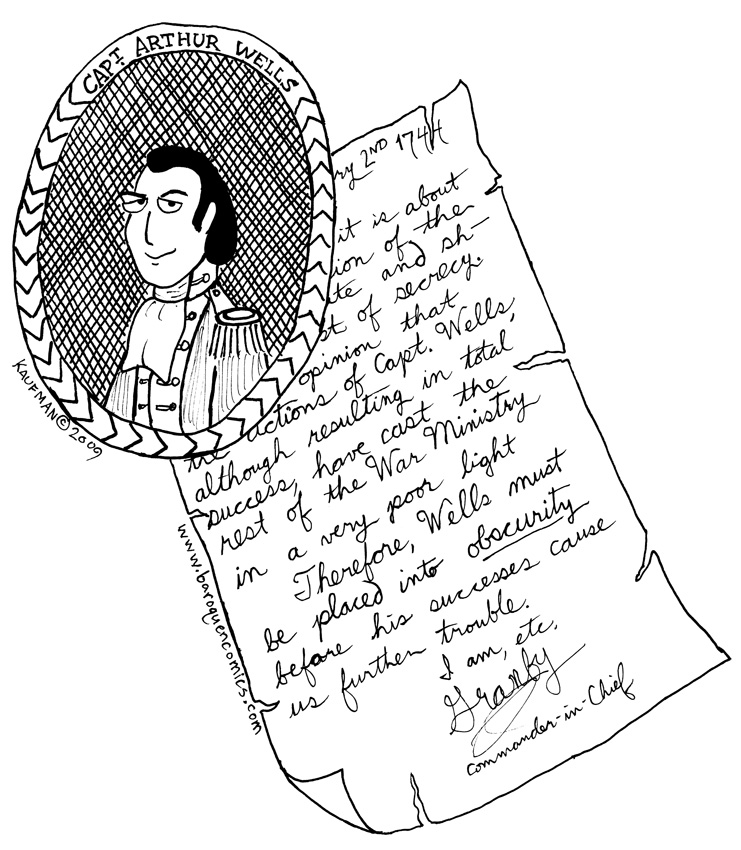 CAPT. ARTHUR WELLS
ry 2ND 1744
it is about
ion of the
te and sh-
st of secrecy.
opinion that
the actions of Capt. Wells,
although resulting in total
success, have cast the
rest of the War Ministry
in a very poor light
Therefore, Wells must
be placed into obscurity
before his successes cause
us further trouble.
I am, etc.
Granby
commander-in-Chief
KAUFMAN © 2009
www.baroquencomics.com